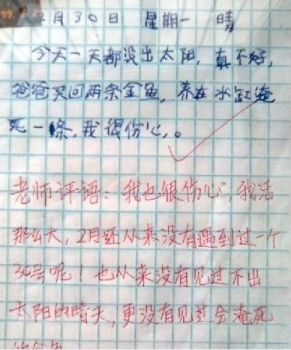 2月30日 星期一 晴
今天一天都没出太阳，真不好，
爸爸买回两条金鱼，养在水缸淹
死一條，我很伤心，。
老师评语：我也很伤心，我活
那么大，2月还从来没有遇到过一个
30号呢！也从来没有见过不出
太阳的晴天，更没有见过会淹死